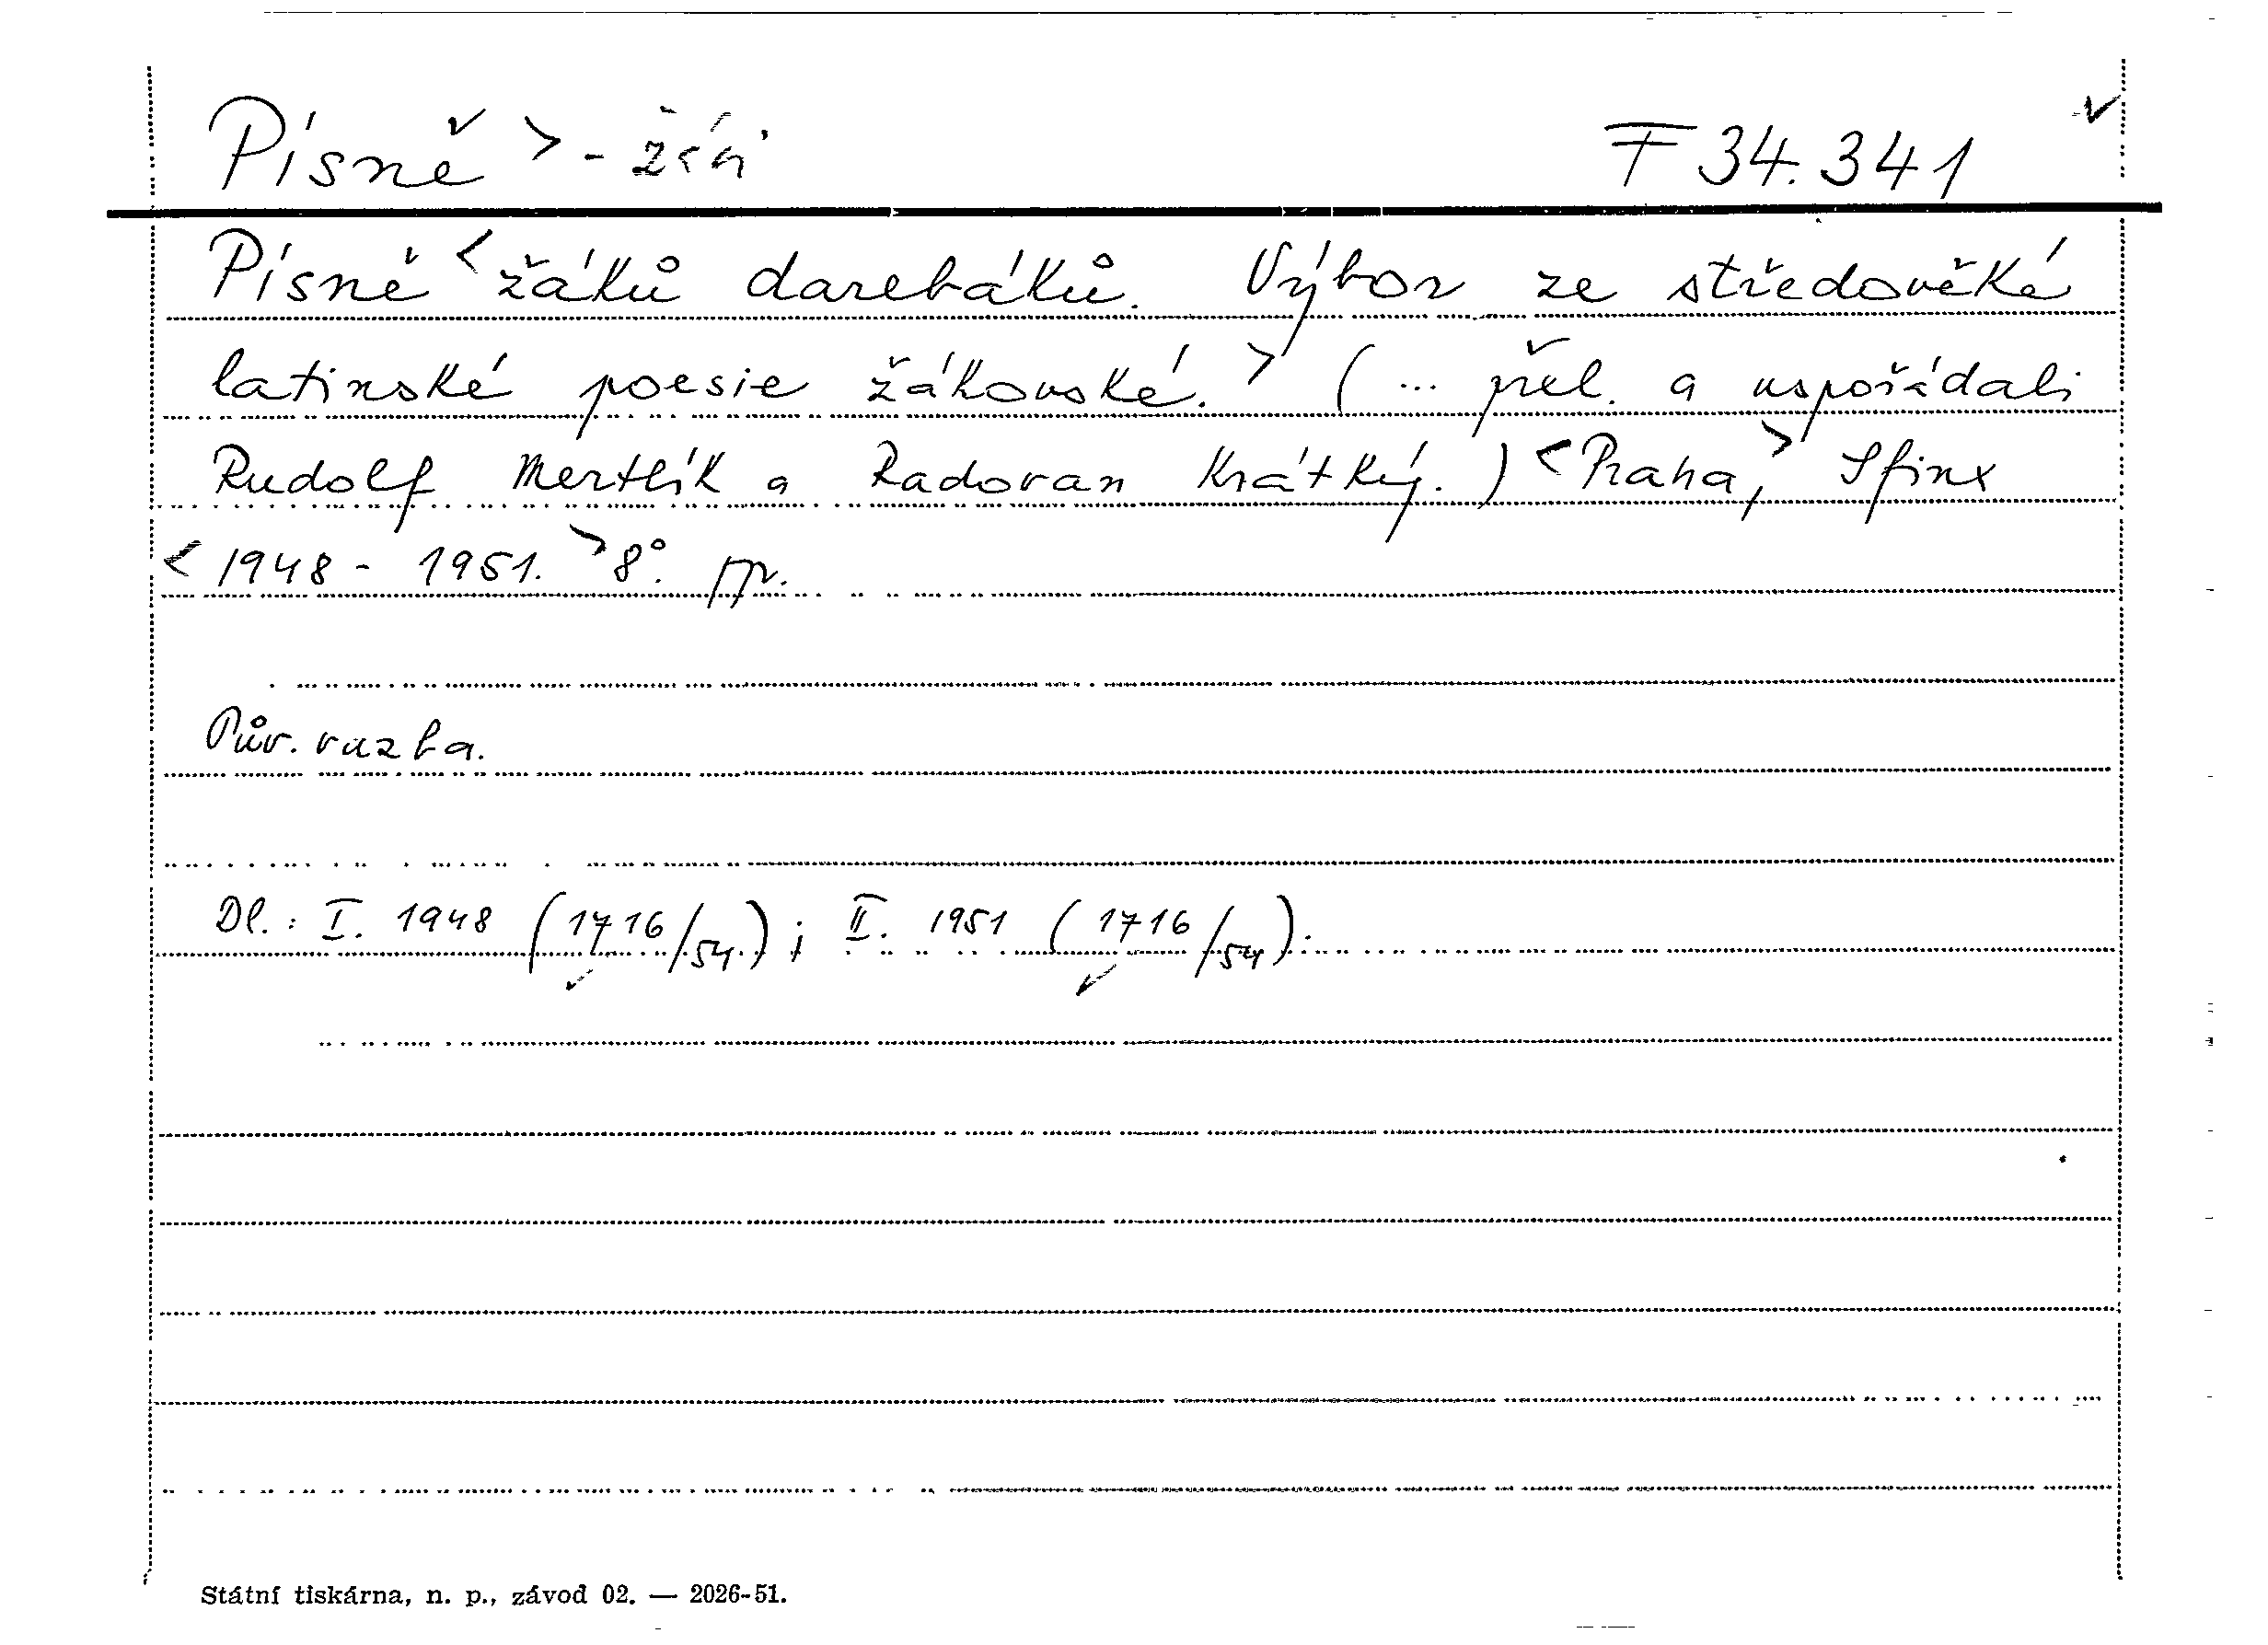 Písně > - žáci F 34.341
Písně < žáků darebáků. Výbor ze středověké
latinské poesie žákovské. > (... přel. a uspořádali
Rudolf Mertlík a Radovan Krátký.) < Praha, > Sfinx
< 1948 - 1951. > 8°.
Pův. vazba.
Dl.: I. 1948 (1716/54.); II. 1951 (1716/54).
Státní tiskárna, n. p., závod 02. — 2026-51.